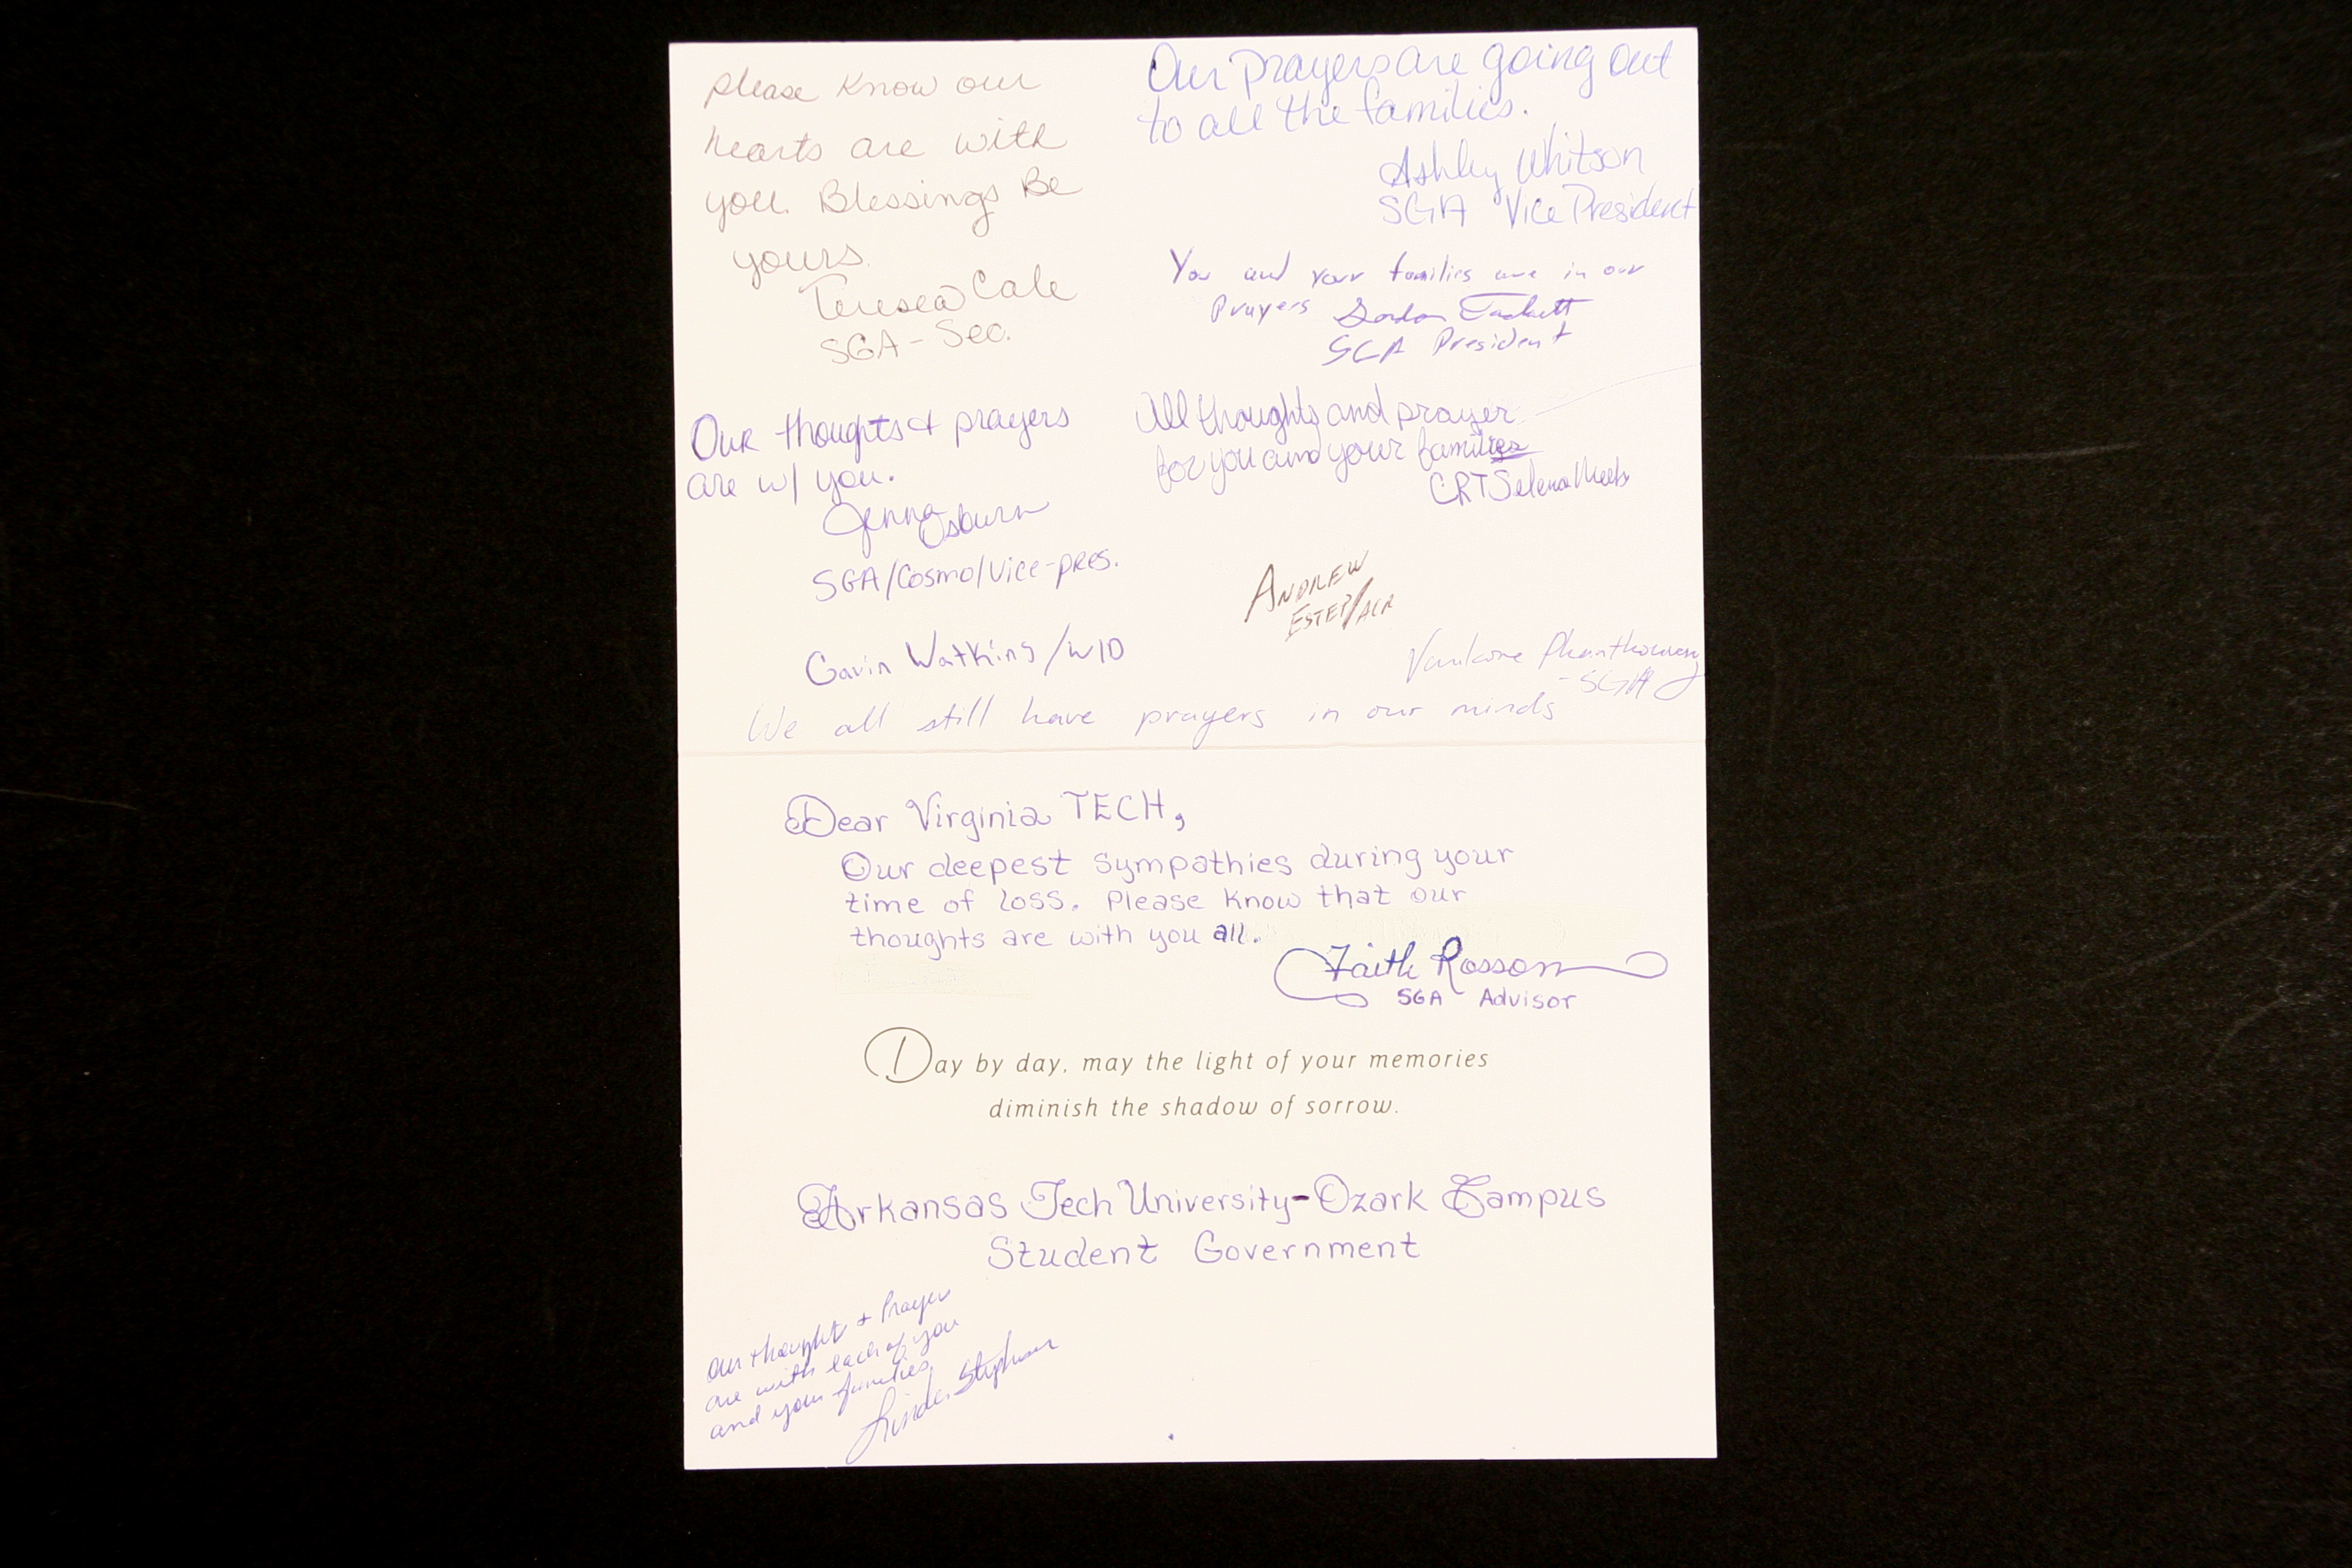 please know our
hearts are with
you. Blessings Be
yours.
Teresea Cale
SGA-Sec.
Our prayers are going out
to all the families.
Ashley Whitson
SGA Vice President
You and your families are in our
Prayers Gordon Tackett
SGA President
Our thoughts & prayers
are w/ you.
Jenna Osburn
SGA/Cosmo/Vice-pres.
All thoughts and prayer
for you and your families
CRT Selena Meeks
ANDREW
ESTEP/ACR
Gavin Watkins/WID
-SGA
We all still have prayers in our minds
Dear Virginia TECH,
Our deepest sympathies during your
time of loss. Please know that our
thoughts are with you all.
Faith Rosson
SGA Advisor
Day by day, may the light of your memories
diminish the shadow of sorrow.
Arkansas Tech University-Ozark Campus
Student Government
Our thought & Prayer
are with each of you
and your families.
Linda Stephson